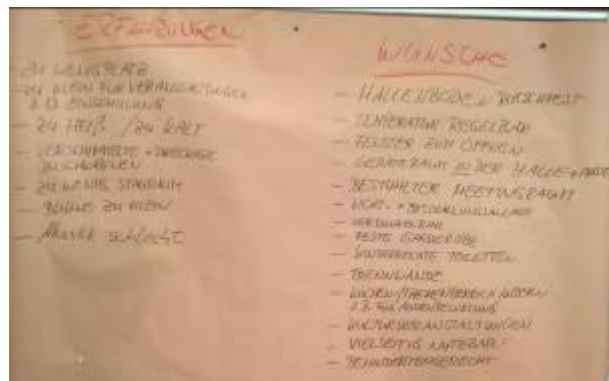 ERFAHRUNGEN
- ZU WENIG PLATZ
- ZU KLEIN FÜR VERANSTALTUNGEN
Z.B. EINSCHULUNG
- ZU HEIß / ZU KALT
- VERSCHIMMELTE + DRECKIGE
- ZU WENIG
- BÜHNE ZU KLEIN
- AKUSTIK SCHLECHT
WÜNSCHE
- HALLENBODEN RUTSCHFEST
- TEMPERATUR REGELBAR
- FENSTER ZUM ÖFFNEN
- GERÄTERAUM IN DER HALLE +
- BESTUHLTER MEETINGRAUM
- LICHT- + BESCHALLUNGSANLAGE
- FESTE GARDEROBE
- KINDGERECHTE TOILETTEN
- TRENNWÄNDE
- KÜCHEN-/THEKENBEREICH
- KULTURVERANSTALTUNGEN
- VIELSEITIG NUTZBAR!
- BEHINDERTENGERECHT